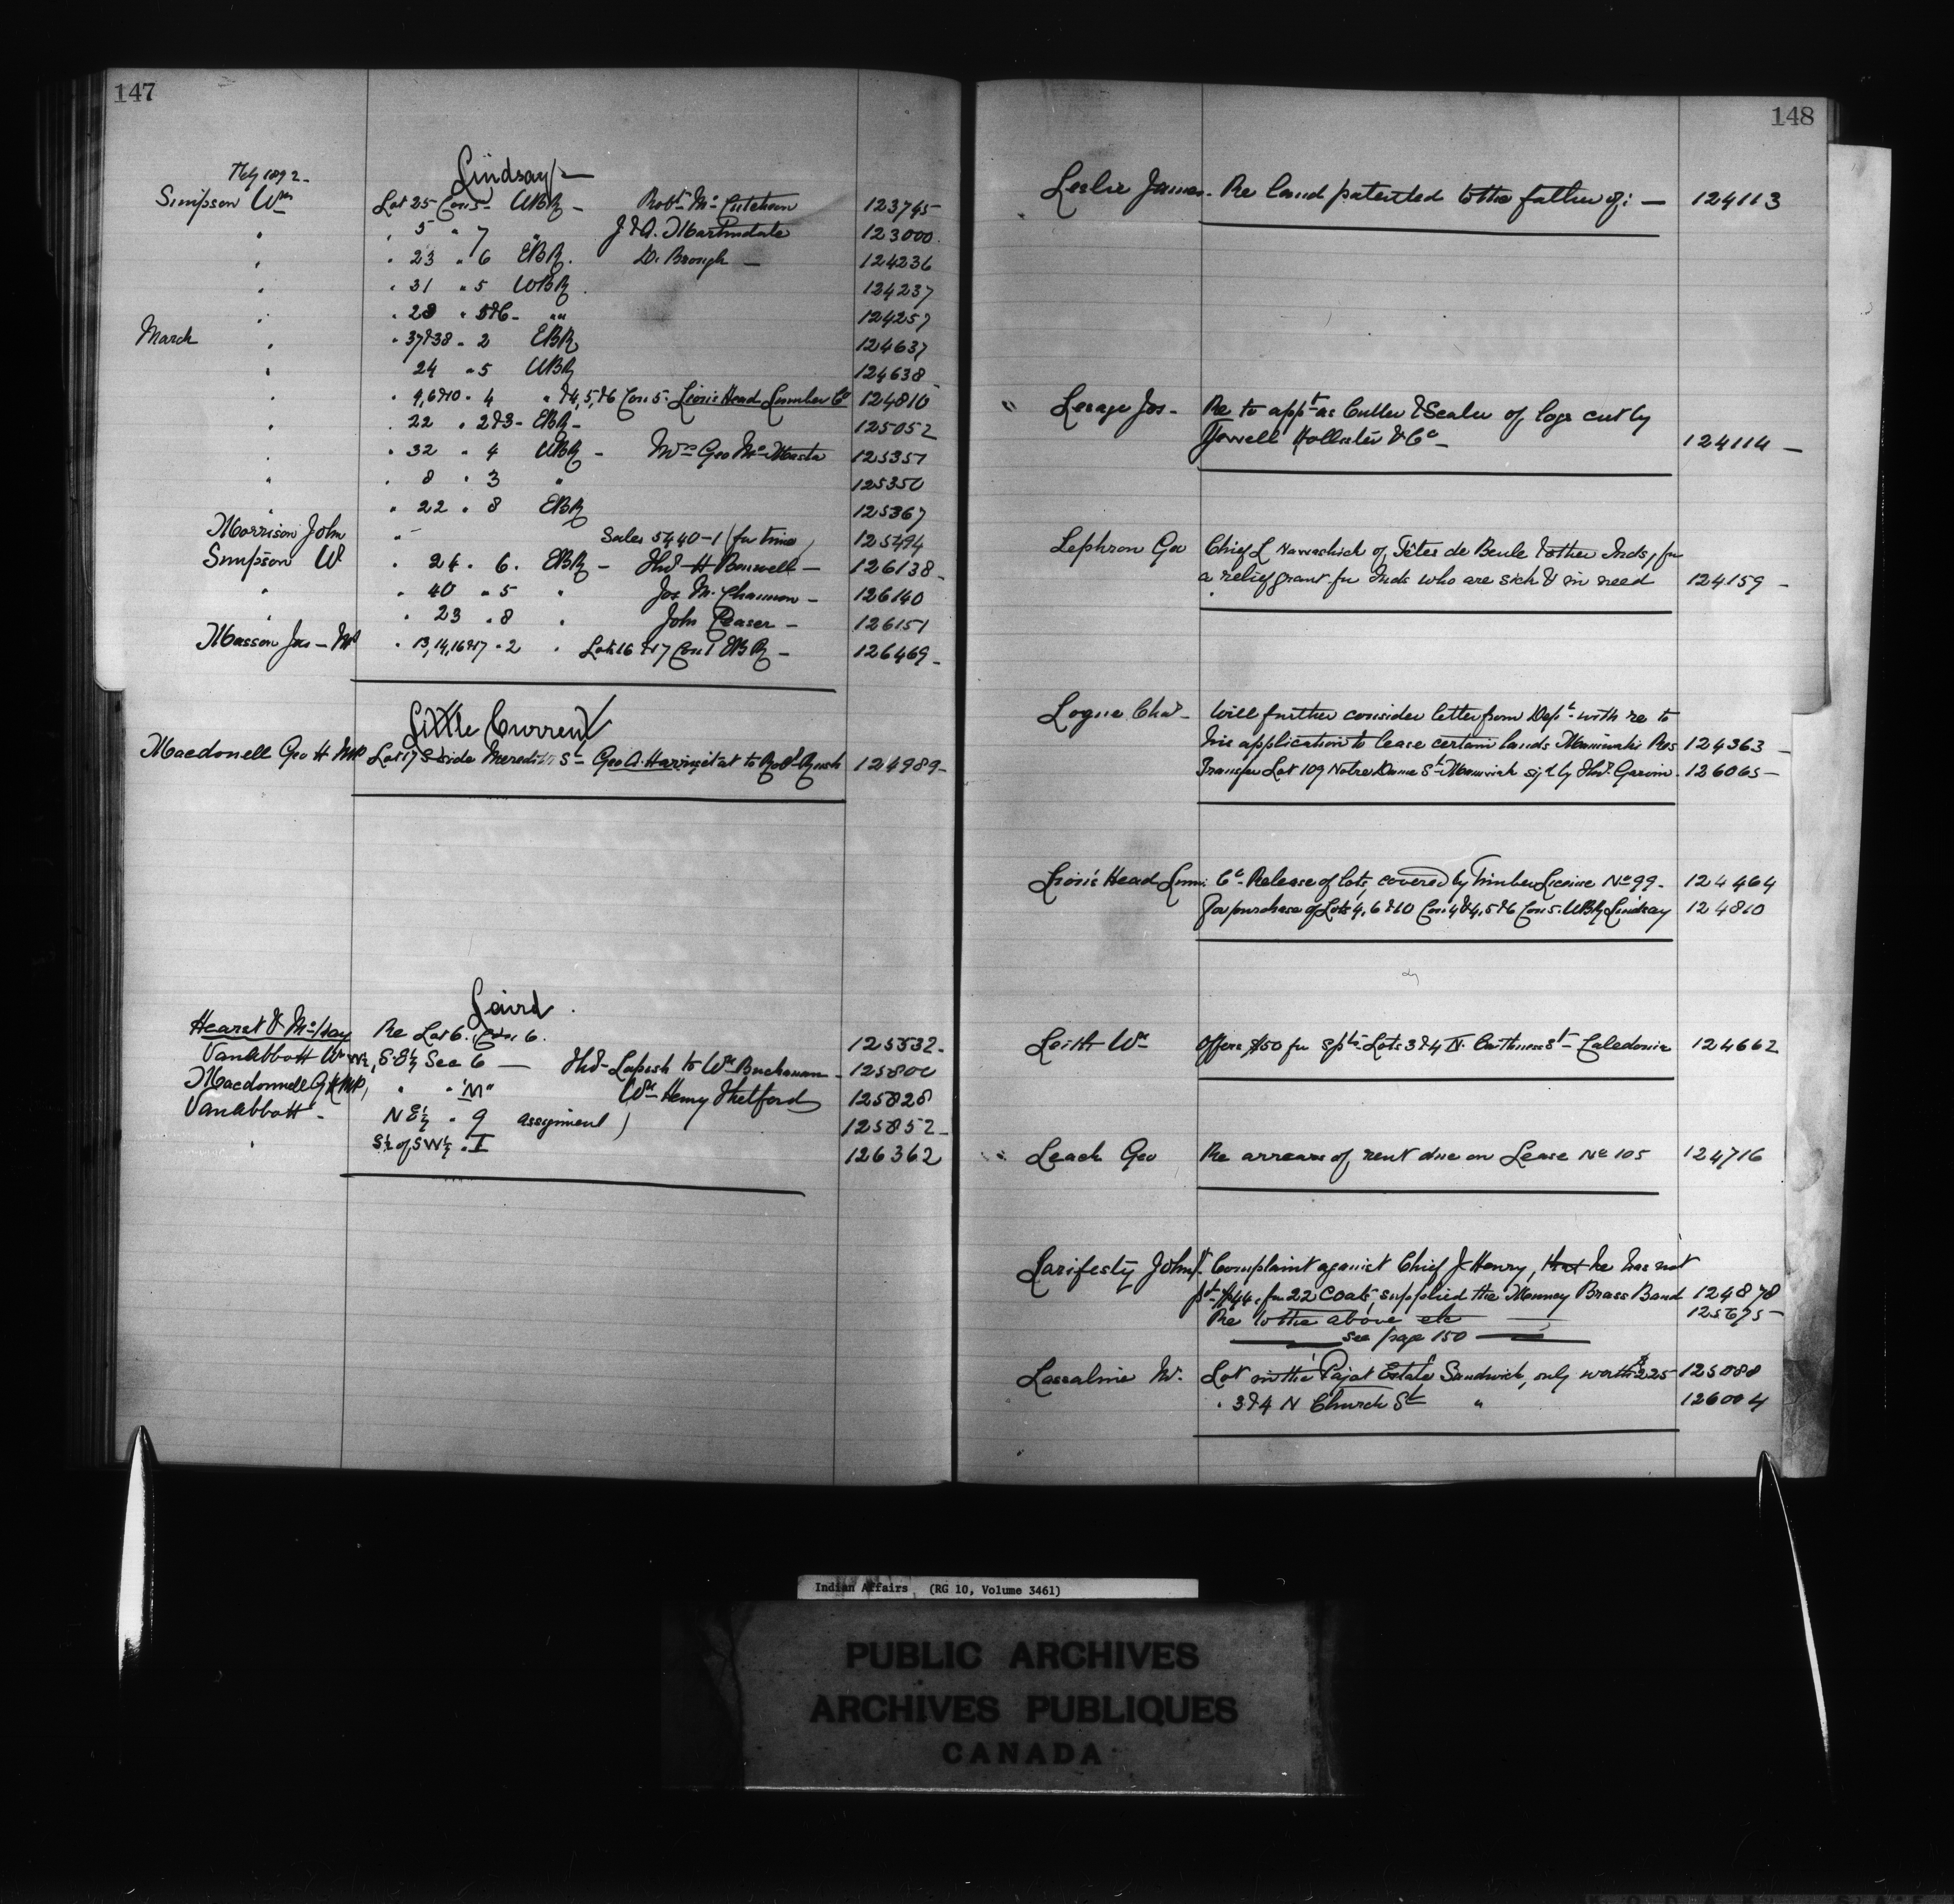 147
Feby 1892-
Lindsay
Simpson Wm Lot 25 Con 5- WBR - Robt Mc Cutcheon 123745-
" " 5 " 7 " J & A. Martindale 123000
" " 23 " 6 EBR. D. Brough - 124236
" " 31 " 5 WBR 124237
" " 28 " 5&6- "" 124257
March " " 37&38 " 2 EBR 124637
" 24 " 5 WBR 124638
" " 4,6&10 " 4 " &4,5,&6 Con 5. Lion's Head Lumber Co 124810
" " 22 " 2&3- EBR- 125052
" " 32 " 4 WBR - Wm Geo Mc 125351
" " 8 " 3 " 125350
" " 22 " 8 EBR 125367
Morrison John " - Sales 5440-1 (for time) 125494
Simpson W " 24 " 6. EBR - Thos H Bonwell - 126138-
" " 40 " 5 " Jos M. Channon - 126140
" " 23 " 8 " John Peaser - 126151
Masson Jas - MP " 13,14,16&17 " 2 " Lots 16 & 17 Con 1 EBR - 126469-
Little Current
Macdonell Geo H MP Lot 17 S side Meredith St - Geo A. to Robt Rush 124989-
Laird
Hearst & McKay Re Lot 6. Con 6. 125532-
VanAbbott Wm W½, S.E¼ Sec 6 - Thos Lapish to Wm Buchanan - 125800
Macdonnell G H MP, " " "M" Wm Henry Thetford 125828
VanAbbott - N E¼ " 9 assignment) 125852-
" S½ of SW¼ " I 126362
148
Leslie James - Re land patented to the father of: - 124113
Lesage Jos - Re to appt as Culler & Scaler of logs cut by
Hollister & Co - 124114 -
Lephron Geo Chief L of Têtes de Boule & other Inds, for
a relief grant for Inds who are sick & in need 124159 -
Logue Chas - Will further consider letter from Dept - with re to
his application to lease certain lands Maniwaki Res 124363 -
Transfer Lot 109 Notre Dame St - sigd by Thos. Garvin - 126065 -
Lion's Head Lum: Co - Release of lots covered by Timber License No 99 - 124464
For purchase of Lots 4, 6 & 10 Con 4 & 4, 5 & 6 Con 5. WBR Lindsay 124810
Leith Wm Offers $50 for Lots 3 & 4 N. Caithness St - Caledonia 124662
Leach Geo Re arrears of rent due on Lease No 105 124716
Larifesty John Complaint against Chief J Henry, that he has not
pd - $44. for 22 Coats, supplied the Brass Band 124878
Re to the above etc 125675 -
See page 150
Lassaline M. Lot in the Pajot Estate Sandwich, only worth $225 125088
" 3 & 4 N Church St " 126004
Indian Affairs (RG 10, Volume 3461)
PUBLIC ARCHIVES
ARCHIVES PUBLIQUES
CANADA